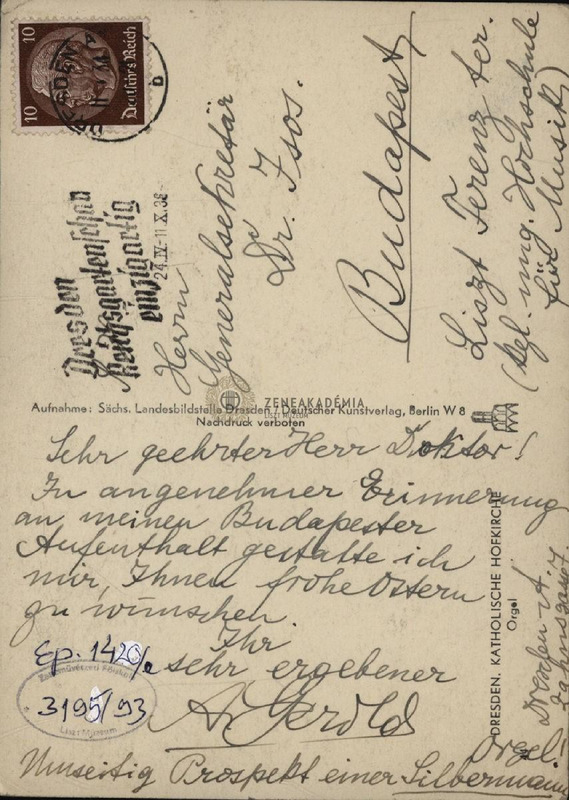 10
10
Deutsches Reich
Dresden
Reichsgartenschau
einzigartig
24.IV-11.X.36
Herrn
Generalsekretär
Dr. Isos.
Budapest
Liszt Ferenz ter.
(Kgl. ung. Hochschule
für Musik)
ZENEAKADÉMIA
LISZT MÚZEUM
Aufnahme: Sächs. Landesbildstelle Dresden / Deutscher Kunstverlag, Berlin W 8
Nachdruck verboten
DRESDEN. KATHOLISCHE HOFKIRCHE
Orgel
Sehr geehrter Herr Doktor!
In angenehmer Erinnerung
an meinen Budapester
Aufenthalt gestatte ich
mir, Ihnen frohe Ostern
zu wünschen.
Ihr
sehr ergebener
Dresden A.
Ep. 1420/2
3195/93
Liszt Múzeum
Umseitig Prospekt einer Silbermann
Orgel!